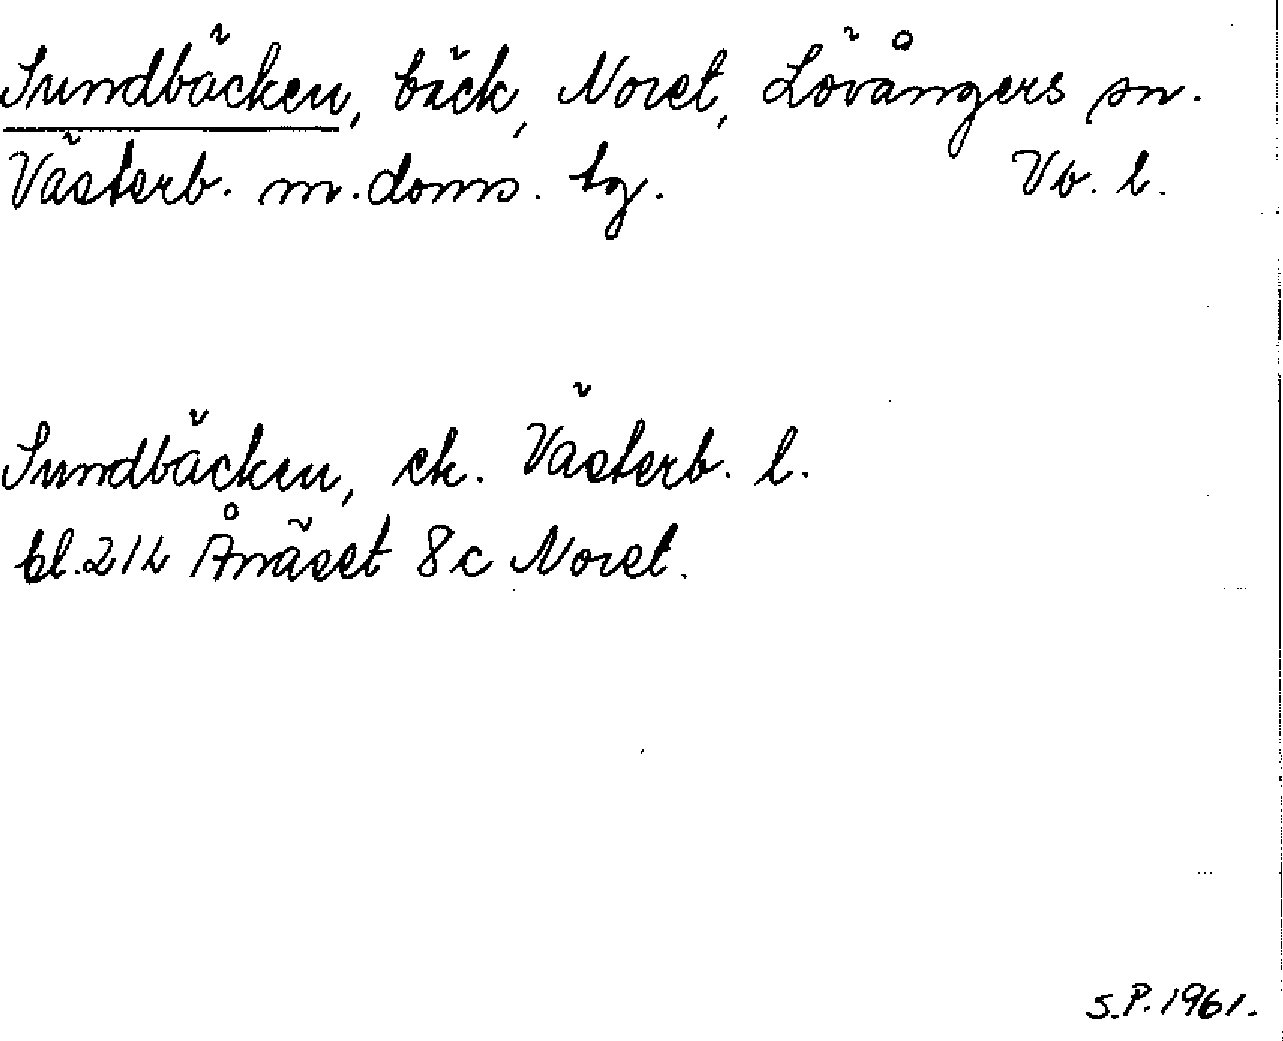 Sundbäcken, bäck, Noret, Lövångers sn.
Västerb. m. doms. tg. Vb. l.
Sundbäcken, ek. Västerb. l.
bl. 21L Ånäset 8c Noret.
S.P. 1961.